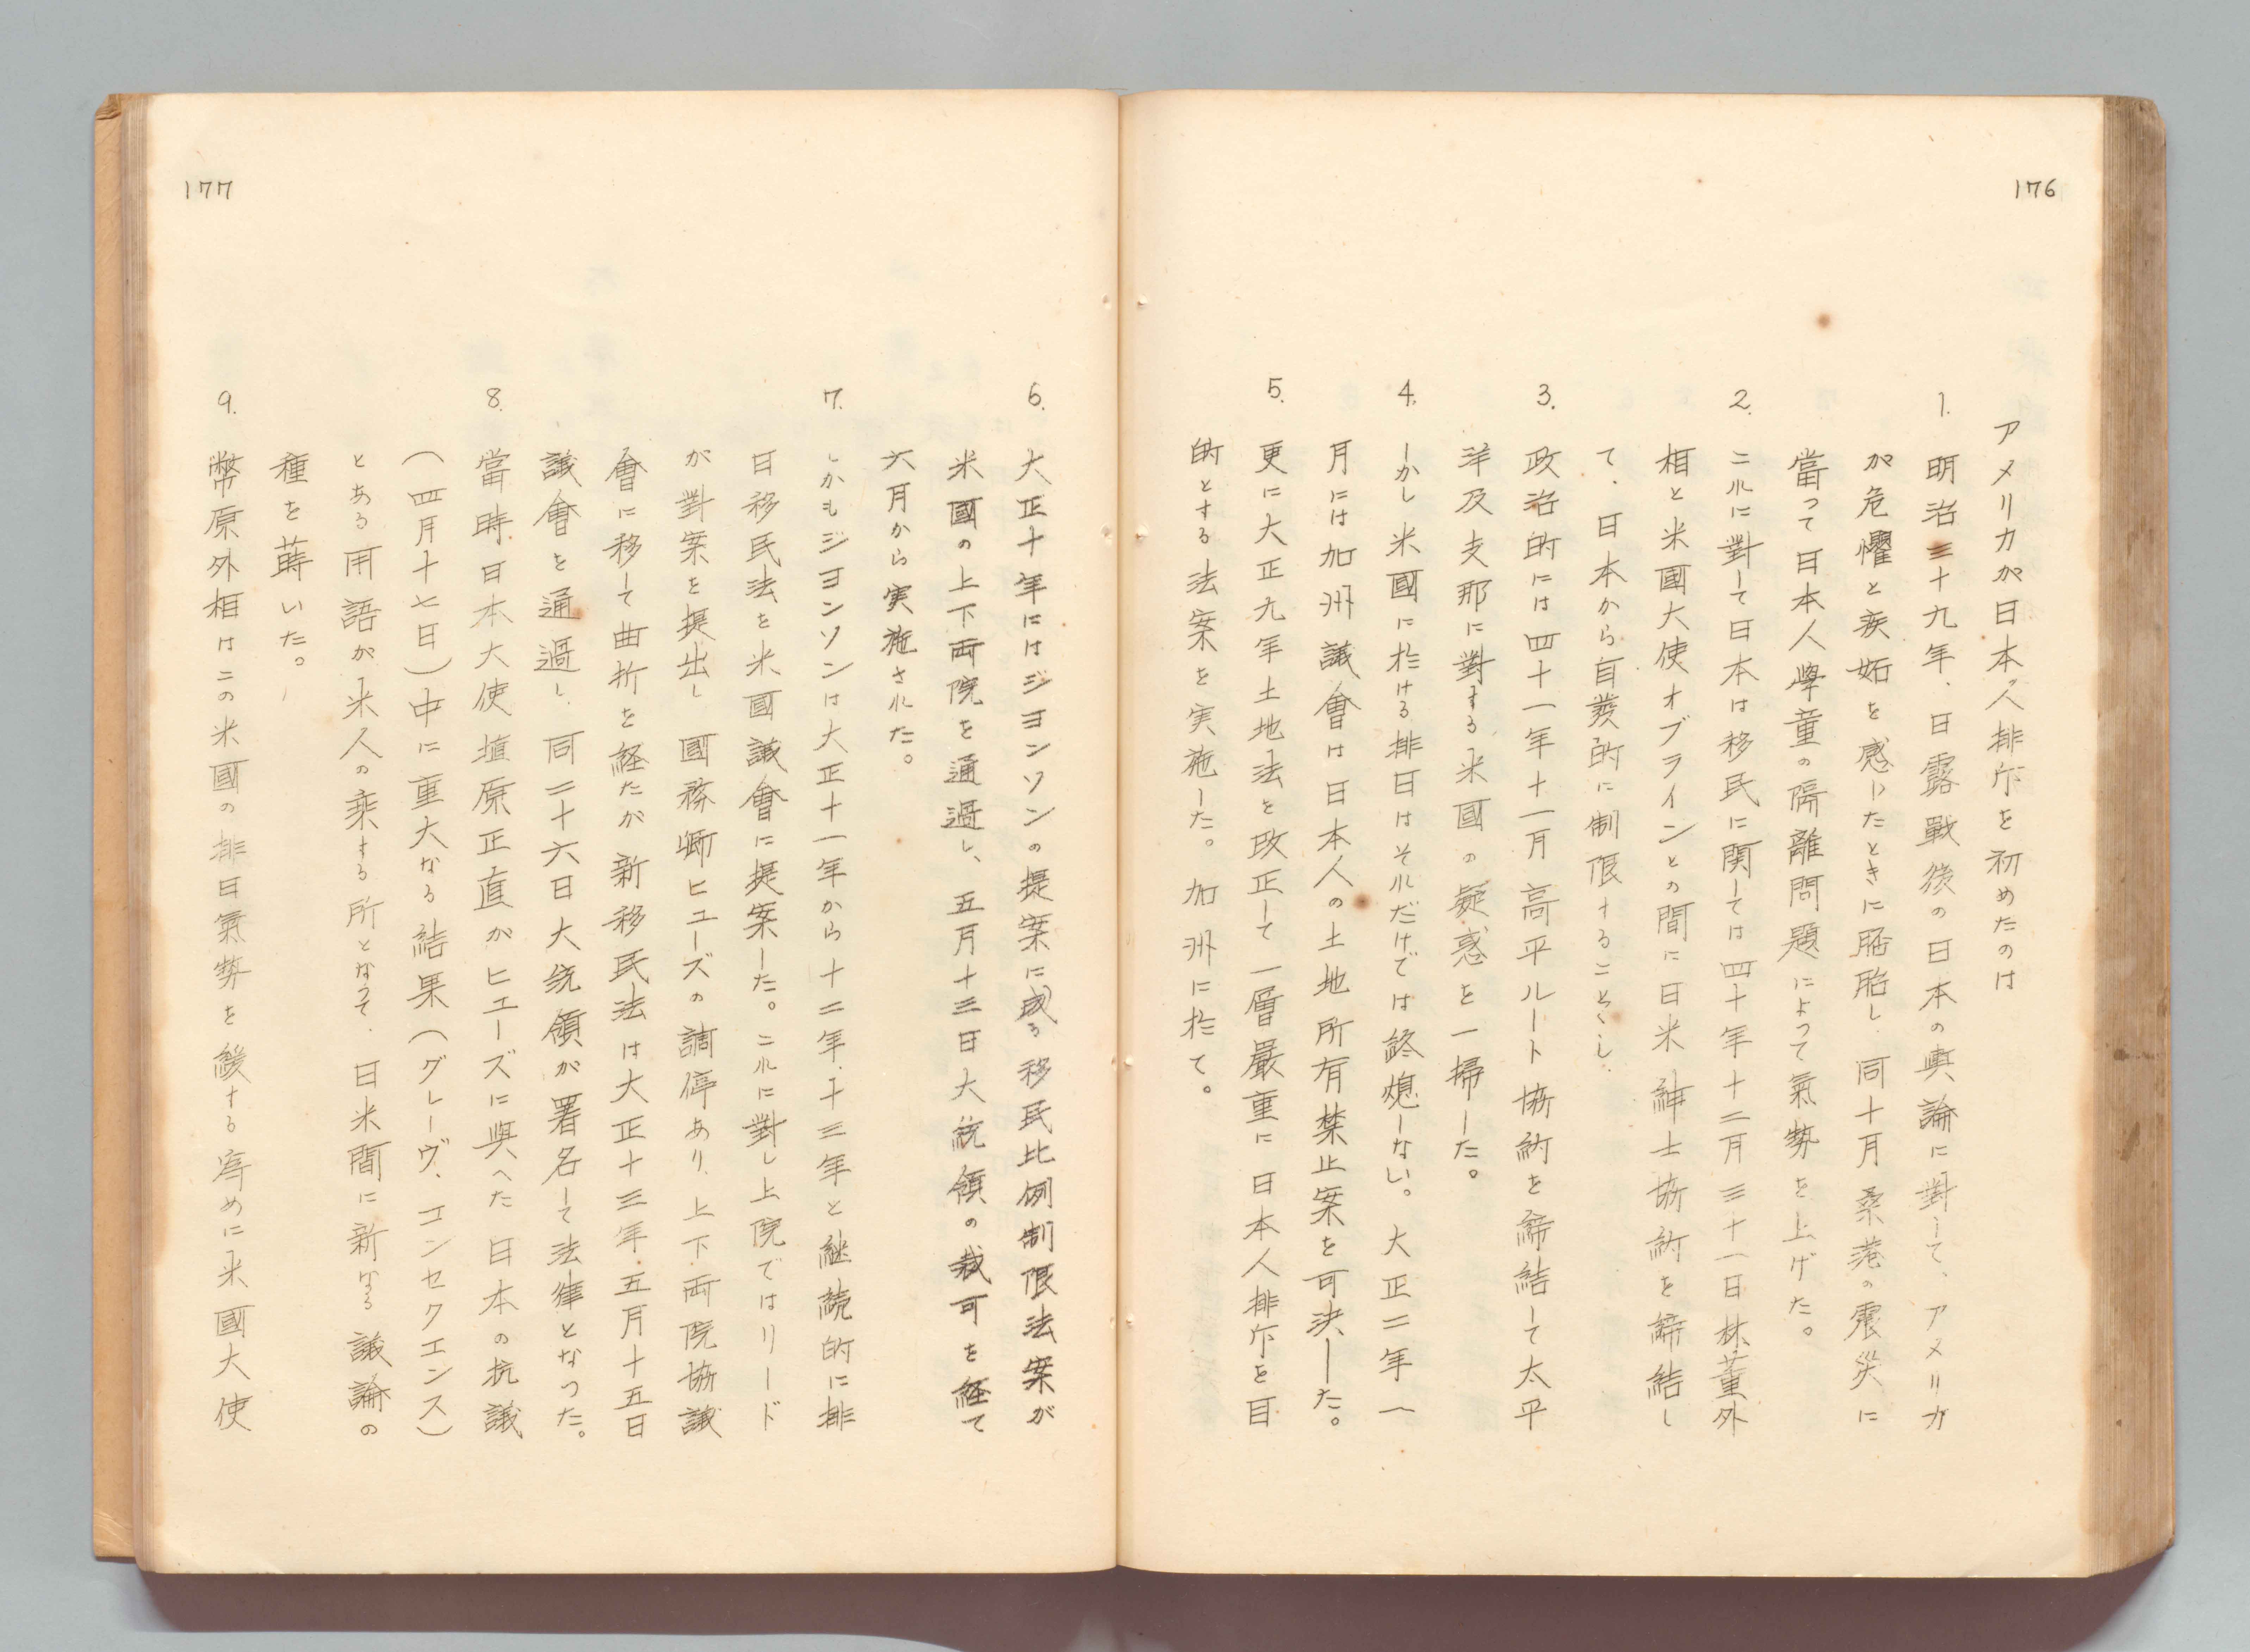 176
アメリカが日本人排斥を初めたのは
1. 明治三十九年、日露戰後の日本の輿論に對して、アメリカ
が危懼と疾妬を感じたときに胚胎し、同十月桑港の震災に
當つて日本人學童の隔離問題によつて氣勢を上げた。
2. これに對して日本は移民に関しては四十年十二月三十一日林董外
相と米國大使オブラインとの間に日米紳士協約を締結し
て、日本から自發的に制限することゝし、
3. 政治的には四十一年十一月高平ルート協約を締結して太平
洋及支那に對する米國の疑惑を一掃した。
4. しかし米國に於ける排日はそれだけでは終熄しない。大正二年一
月には加州議會は日本人の土地所有禁止案を可決した。
5. 更に大正九年土地法を改正して一層嚴重に日本人排斥を目
的とする法案を実施した。加州に於て。
177
6. 大正十年にはジヨンソンの提案に成る移民比例制限法案が
米國の上下両院を通過し、五月十三日大統領の裁可を経て
六月から実施された。
7. しかもジヨンソンは大正十一年から十二年、十三年と継続的に排
日移民法を米國議會に提案した。これに對し上院ではリード
が對案を提出し國務卿ヒユーズの調停あり、上下両院協議
會に移して曲折を経たが新移民法は大正十三年五月十五日
議會を通過し、同二十六日大統領が署名して法律となつた。
8. 當時日本大使埴原正直がヒエーズに與へた日本の抗議
（四月十七日）中に重大なる結果（グレーヴ、コンセクエンス）
とある用語が米人の乗する所となつて、日米間に新なる議論の
種を蒔いた。
9. 幣原外相はこの米國の排日氣勢を緩する為めに米國大使